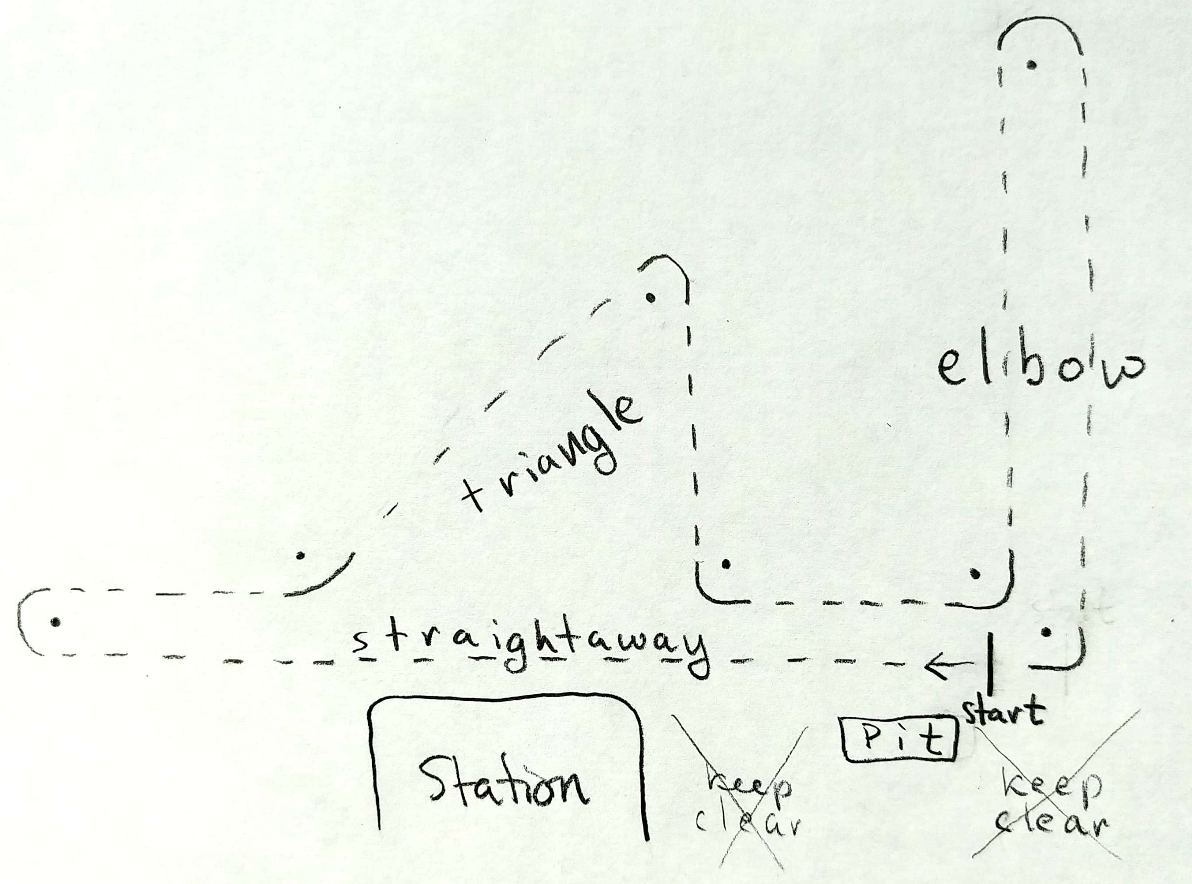 elbow
triangle
straightaway
start
Pit
Station
keep
clear
keep
clear